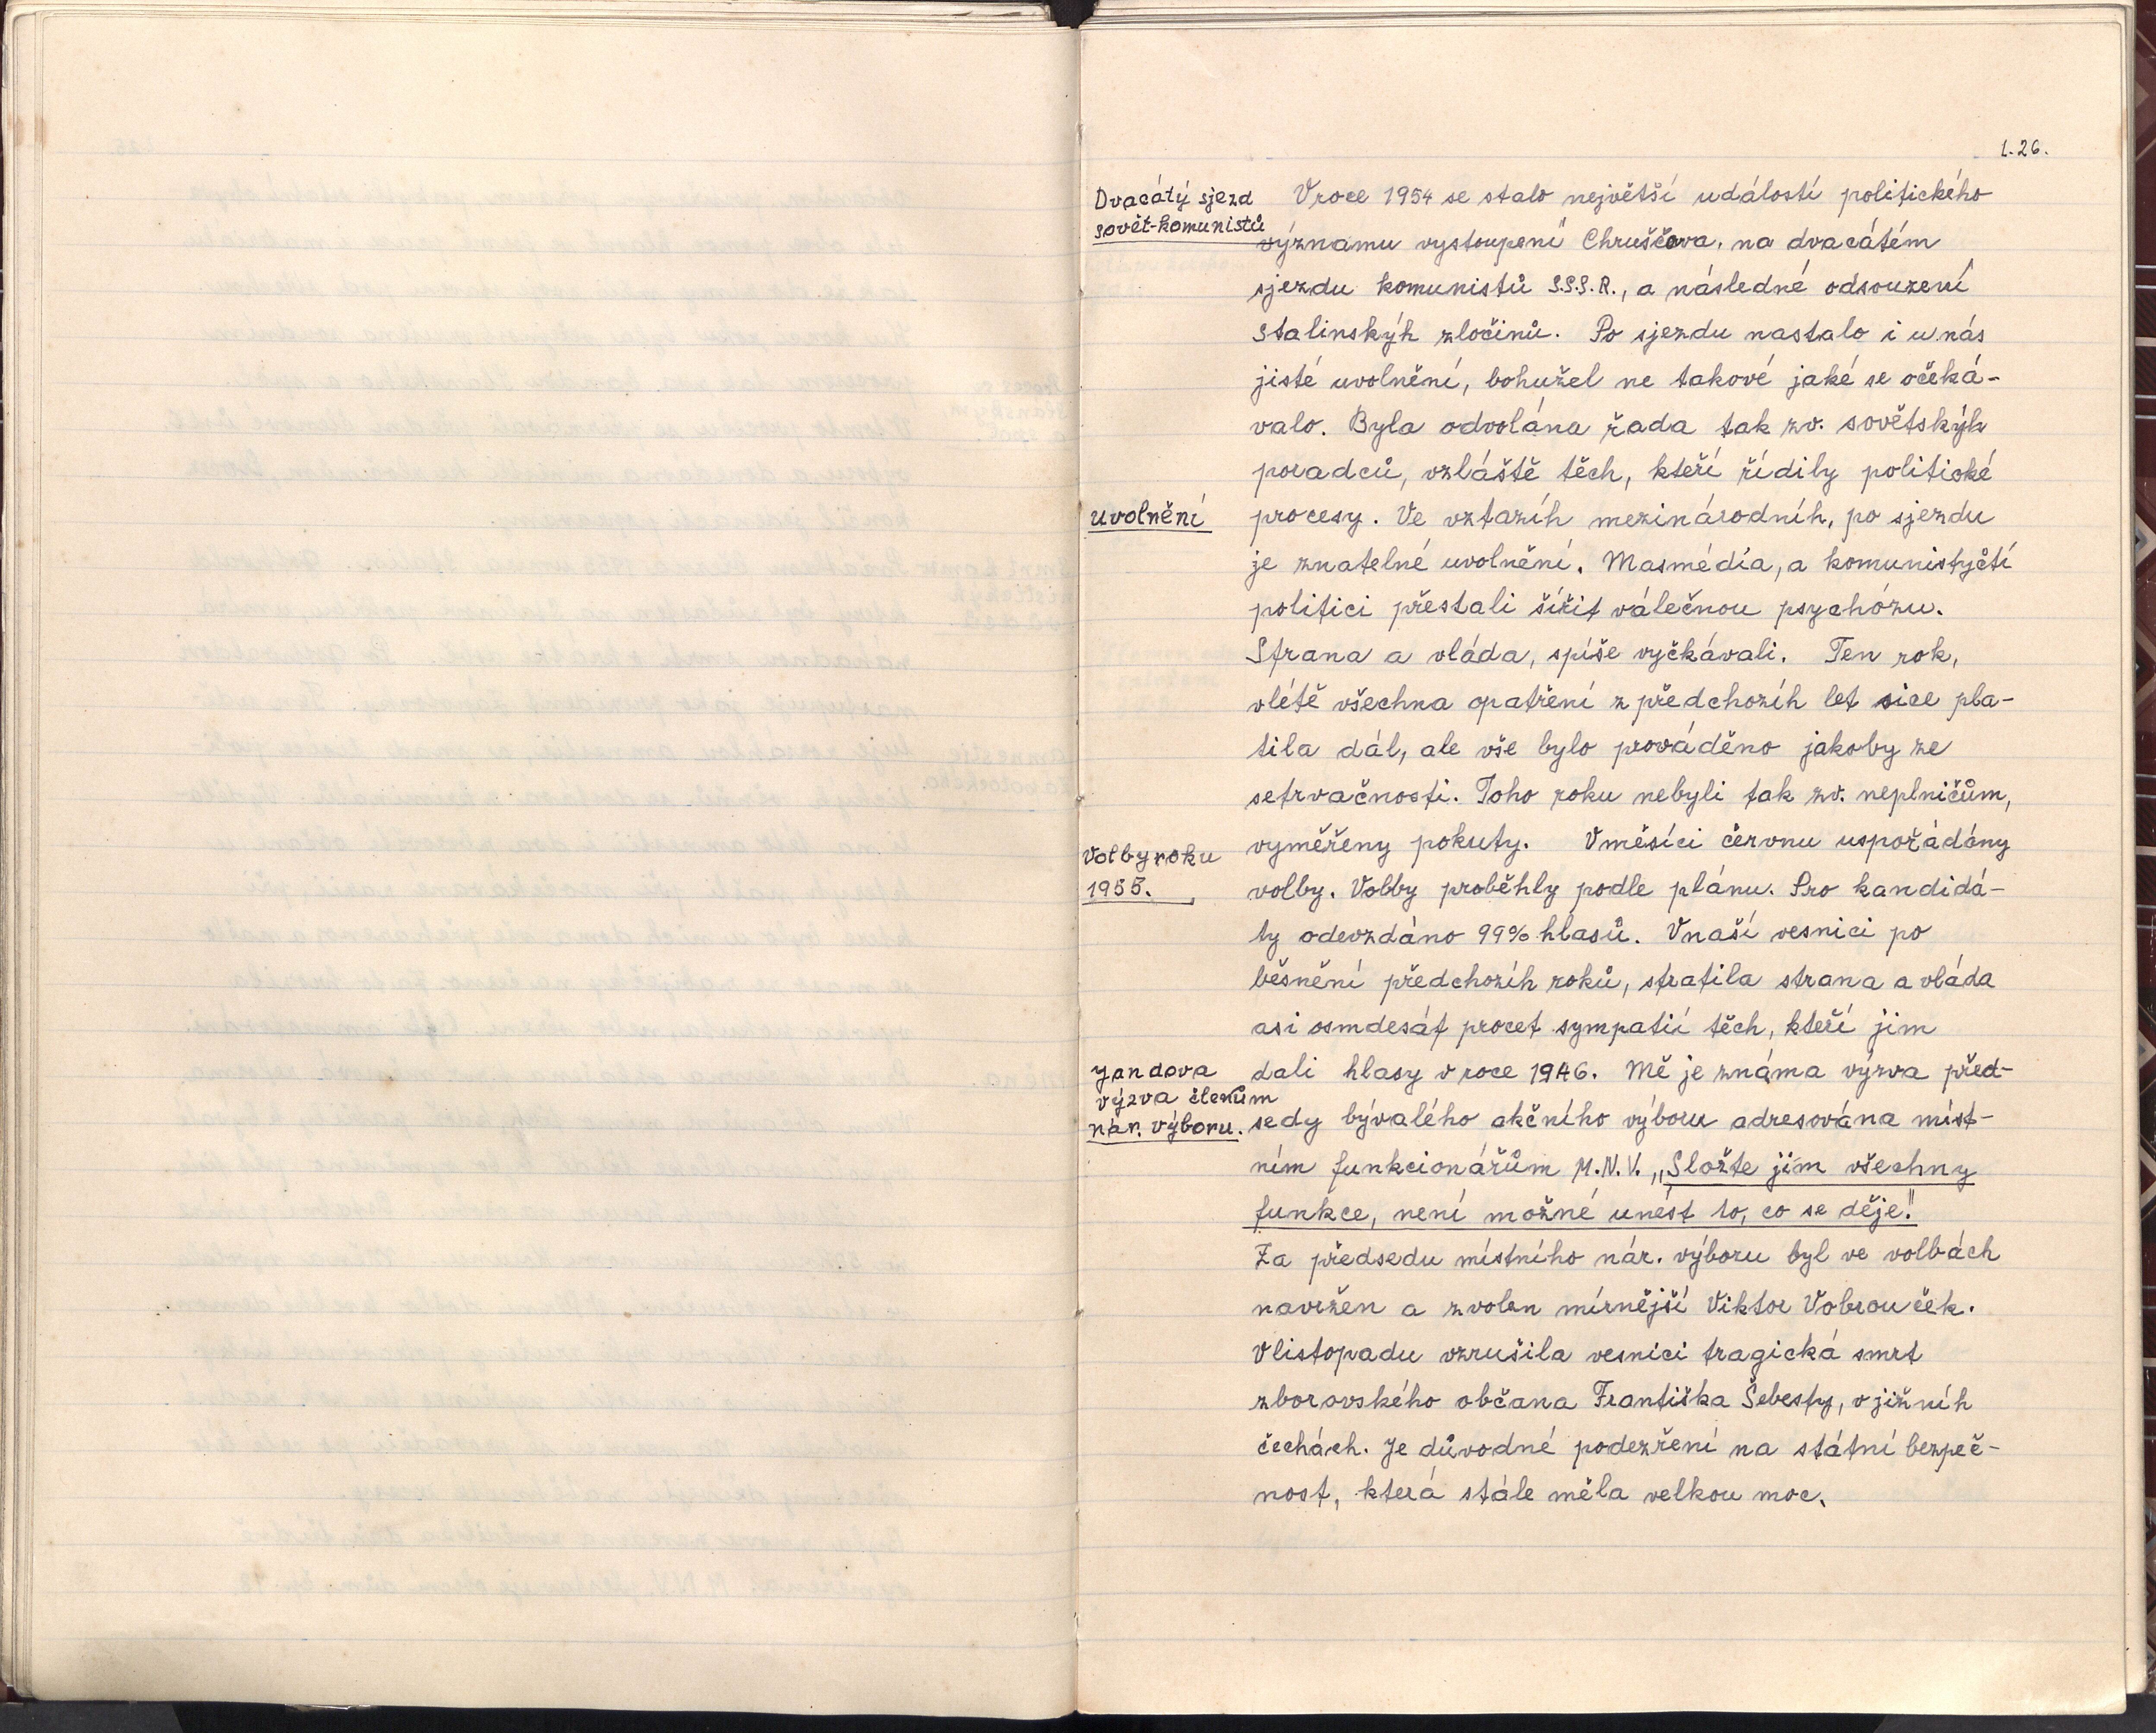 1.26.
Dvacátý sjezd
sovět-komunistů
V roce 1954 se stalo největší událostí politického
významu vystoupení Chruščova, na dvacátém
sjezdu komunistů S.S.S.R., a následné odsouzení
Stalinskýh zločinů. Po sjezdu nastalo i u nás
jisté uvolnění, bohužel ne takové jaké se očeká-
valo. Byla odvolána řada tak zv. sovětskýh
poradců, vzláště těch, kteří řídily politické
uvolnění
procesy. Ve vztazíh mezinárodníh, po sjezdu
je znatelné uvolnění. Masmédia, a komunistyčtí
politici přestali šířit válečnou psychózu.
Strana a vláda, spíše vyčkávali. Ten rok,
vlétě všechna opatření z předchozíh let sice pla-
tila dál, ale vše bylo prováděno jakoby ze
setrvačnosti. Toho roku nebyli tak zv. neplničům,
Volby roku
1955.
vyměřeny pokuty. V měsíci červnu uspořádány
volby. Volby proběhly podle plánu. Pro kandidá-
ty odevzdáno 99% hlasů. V naší vesnici po
běsnění předchozíh roků, stratila strana a vláda
asi osmdesát procet sympatií těch, kteří jim
Jandova
výzva členům
nár. výboru.
dali hlasy v roce 1946. Mě je známa výzva před-
sedy bývalého akčního výboru adresována míst-
ním funkcionářům M.N.V. „Složte jim všechny
funkce, není možné unést to, co se děje!"
Za předsedu místního nár. výboru byl ve volbách
navržen a zvolen mírnější Viktor Vobrouček.
V listopadu vzrušila vesnici tragická smrt
zborovského občana Františka Šebesty, v jižníh
čechách. Je důvodné podezření na státní bezpeč-
nost, která stále měla velkou moc.